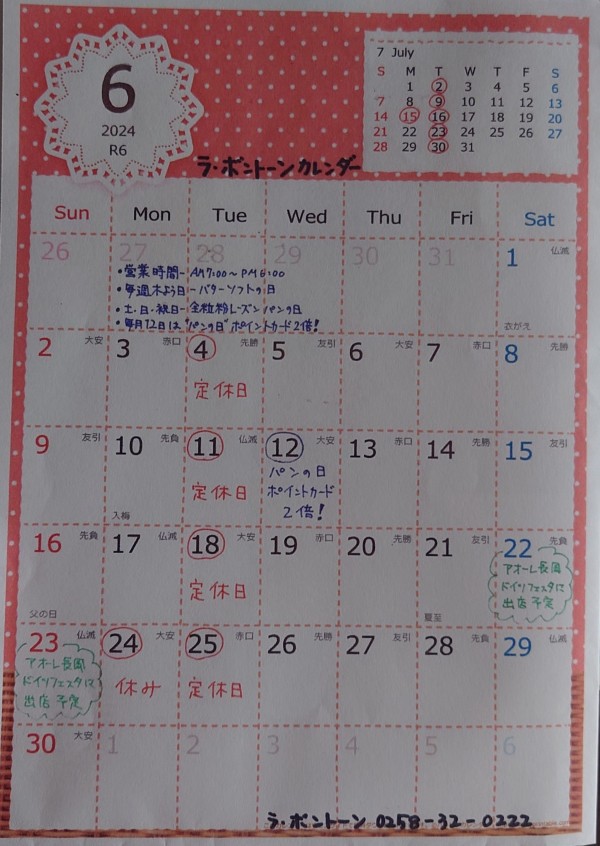 6
2024
R6
7 July
S M T W T F S
1 2 3 4 5 6
7 8 9 10 11 12 13
14 15 16 17 18 19 20
21 22 23 24 25 26 27
28 29 30 31
ラ・ボントーンカレンダー
Sun Mon Tue Wed Thu Fri Sat
26 27 28 29 30 31 1 仏滅
・営業時間-AM7:00~PM6:00
・毎週木よう日-バターソフトの日
・土・日・祝日-全粒粉レーズンパンの日
・毎月12日は"パンの日"ポイントカード2倍!
衣がえ
2 大安 3 赤口 4 先勝 5 友引 6 大安 7 赤口 8 先勝
定休日
9 友引 10 先負 11 仏滅 12 大安 13 赤口 14 先勝 15 友引
定休日
パンの日
ポイントカード
2倍!
入梅
16 先負 17 仏滅 18 大安 19 赤口 20 先勝 21 友引 22 先負
定休日
アオーレ長岡
ドイツフェスタに
出店予定
父の日 夏至
23 仏滅 24 大安 25 赤口 26 先勝 27 友引 28 先負 29 仏滅
アオーレ長岡
ドイツフェスタに
出店予定
休み 定休日
30 大安 1 2 3 4 5 6
ラ・ボントーン 0258-32-0222